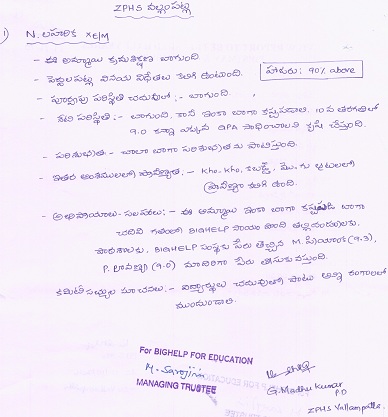 ZPHS వల్లంపట్ల
1) N. లహరిక XE/M
- ఈ అమ్మాయి క్రమశిక్షణ బాగుంది.
- పెద్దలపట్ల వినయ విధేతలు కలిగి ఉంటుంది.
హాజరు: 90% above
- పూర్వపు పరిస్థితి చదువులో :- బాగుంది.
- నేటి పరిస్థితి :- బాగుంది. కానీ ఇంకా బాగా కష్టపడాలి. 10వ తరగతిలో
9.0 కన్నా ఎక్కువ GPA సాధించాలని కృషి చేస్తుంది.
- పరిశుభ్రత :- చాలా బాగా పరిశుభ్రతను పాటిస్తుంది.
- ఇతర అంశములలో ప్రావీణ్యత :- Kho, Kho, కబడ్డీ, మొ.గు ఆటలలో
ప్రావీణ్యం కలిగి ఉంది.
- అభిప్రాయాలు- సలహాలు :- ఈ అమ్మాయి ఇంకా బాగా కష్టపడి బాగా
చదివి గతంలో BIGHELP సాయం పొంది తల్లిదండ్రులకు,
పాఠశాలకు, BIGHELP సంస్థకు పేరు తెచ్చిన M. ప్రియాంక (9.3),
P. లావణ్య (9.0) మాదిరిగా పేరు తీసుకువస్తుంది.
కమిటీ సభ్యుల సూచనలు :- విద్యార్థులు చదువులో పాటు అన్ని రంగాలలో
ముందుండాలి.
For BIGHELP FOR EDUCATION
M. Sarojini
MANAGING TRUSTEE
G. Madhu Kumar
P.D
ZPHS Vallampatla